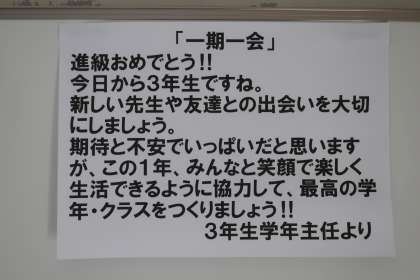 「一期一会」
進級おめでとう!!
今日から3年生ですね。
新しい先生や友達との出会いを大切
にしましょう。
期待と不安でいっぱいだと思います
が、この1年、みんなと笑顔で楽しく
生活できるように協力して、最高の学
年・クラスをつくりましょう!!
3年生学年主任より